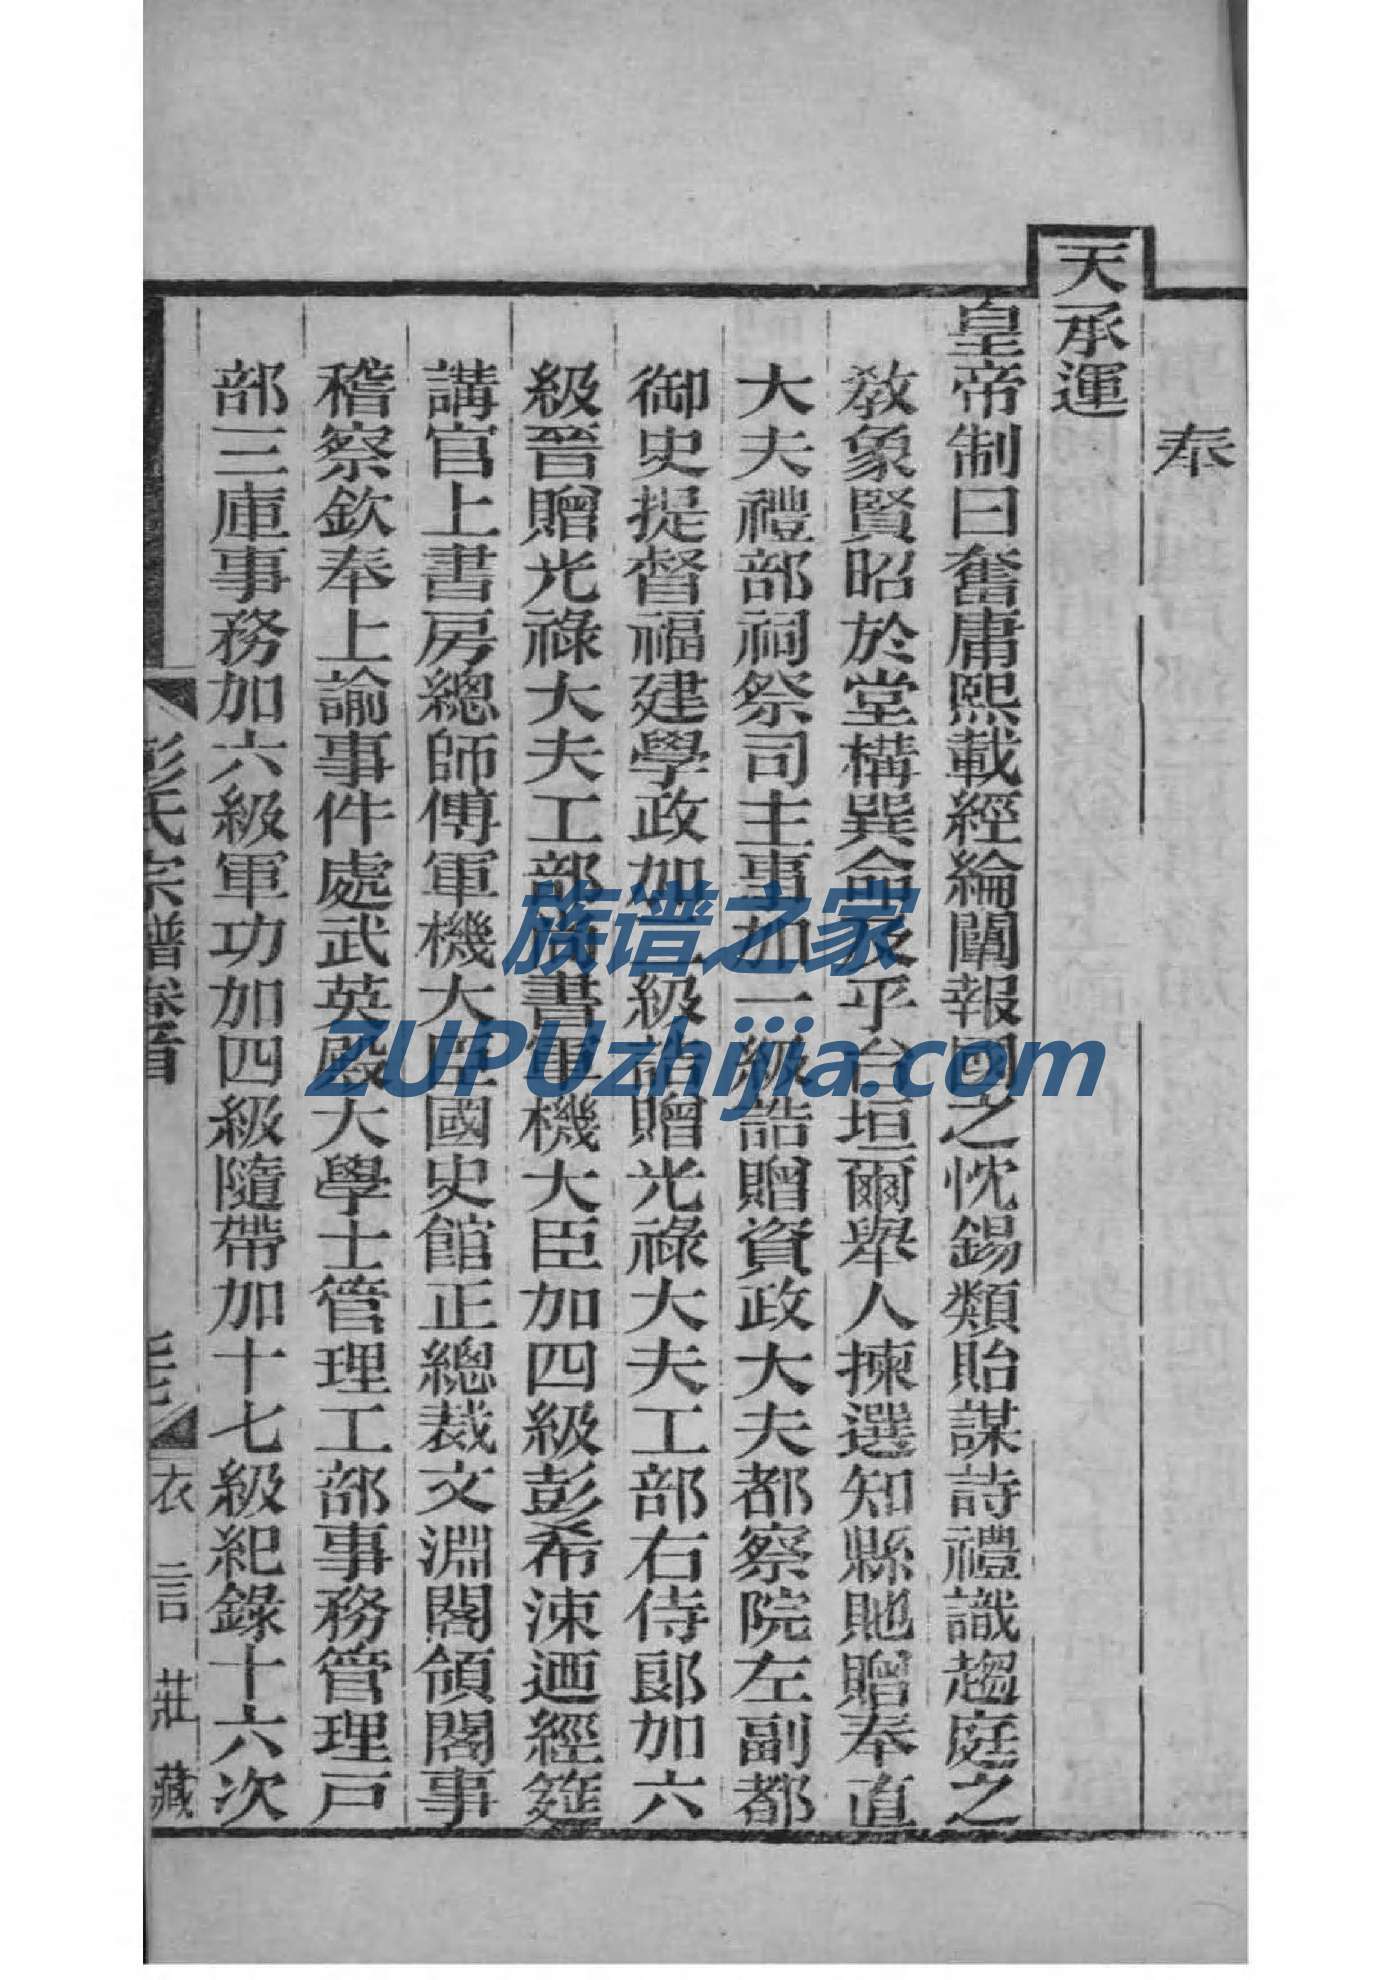 奉
天承運
皇帝制曰奮庸熙載經綸闡報國之忱錫類貽謀詩禮識趨庭之
教象賢昭於堂構巽命及乎台垣爾舉人揀選知縣貤贈奉直
大夫禮部祠祭司主事加一級誥贈資政大夫都察院左副都
御史提督福建學政加二級誥贈光祿大夫工部右侍郎加六
級晉贈光祿大夫工部尚書軍機大臣加四級彭希涑迺經筵
講官上書房總師傅軍機大臣國史館正總裁文淵閣領閣事
稽察欽奉上諭事件處武英殿大學士管理工部事務管理戶
部三庫事務加六級軍功加四級隨帶加十七級紀錄十六次
彭氏宗譜卷首
衣言莊藏
族谱之家
ZUPUzhijia.com